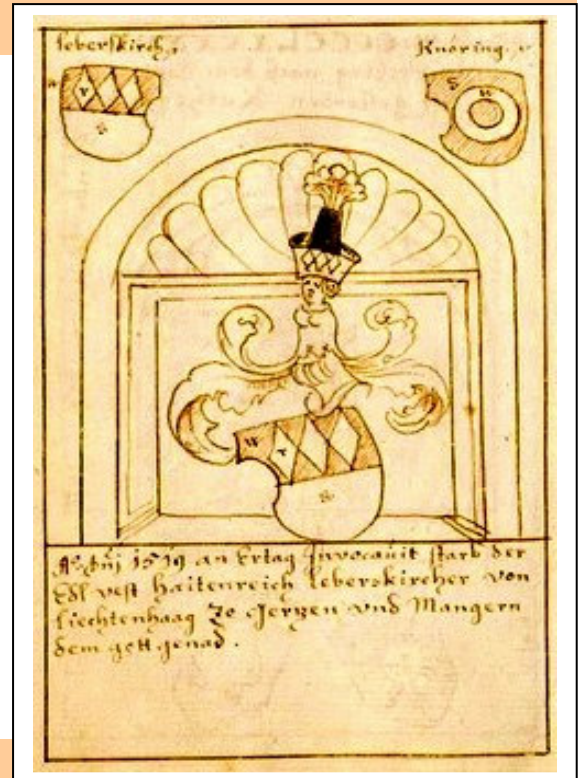 leberskirch,
Knoring,
S
W
S
W
S
Añ dnj 1519 an Ertag Invocauit starb der
Edl vest Haitenreich leberskircher von
liechtenhaag zo Gerzen vnd Mangern
dem gott genad.